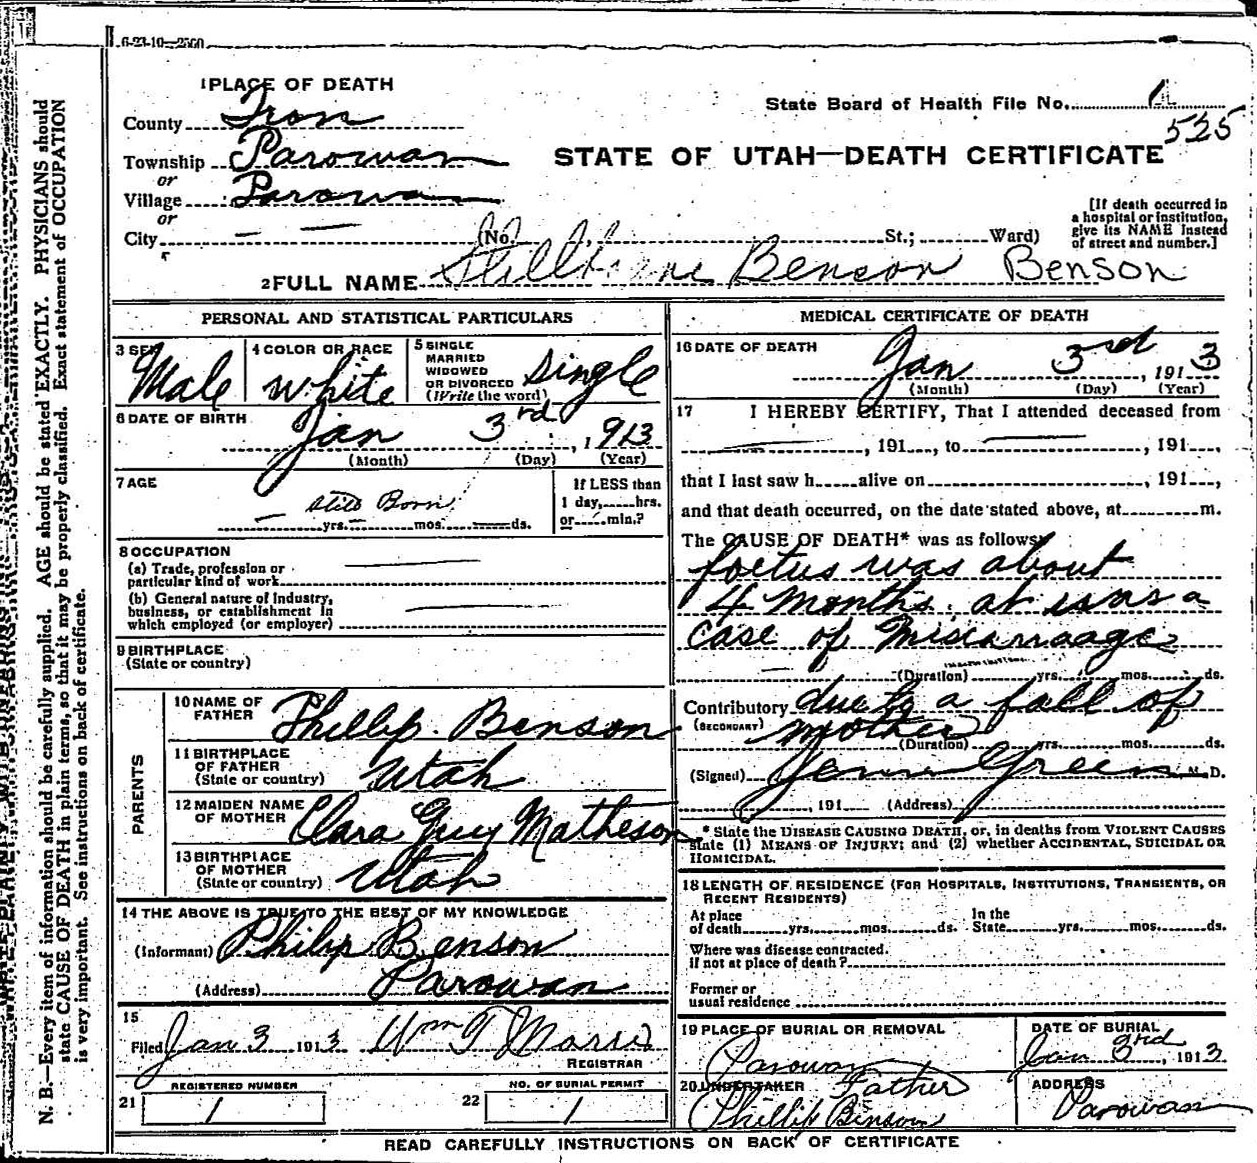 6-23-10—2500
1 PLACE OF DEATH
State Board of Health File No. 1
525
County Iron
Township Parowan
or
Village Parowan
or
City
STATE OF UTAH—DEATH CERTIFICATE
(No. St.; Ward)
[If death occurred in a hospital or institution, give its NAME instead of street and number.]
2 FULL NAME Benson Benson
PERSONAL AND STATISTICAL PARTICULARS
3 SEX Male
4 COLOR OR RACE white
5 SINGLE MARRIED WIDOWED OR DIVORCED (Write the word) Single
6 DATE OF BIRTH Jan 3rd, 1913
(Month) (Day) (Year)
7 AGE
Still Born
yrs. mos. ds.
If LESS than
1 day, hrs.
or min.?
8 OCCUPATION
(a) Trade, profession or
particular kind of work
(b) General nature of industry,
business, or establishment in
which employed (or employer)
9 BIRTHPLACE
(State or country)
PARENTS
10 NAME OF FATHER Phillip Benson
11 BIRTHPLACE OF FATHER (State or country) Utah
12 MAIDEN NAME OF MOTHER Clara Guy Matheson
13 BIRTHPLACE OF MOTHER (State or country) Utah
14 THE ABOVE IS TRUE TO THE BEST OF MY KNOWLEDGE
(Informant) Philip Benson
(Address) Parowan
15
Filed Jan 3 1913 Wm T
REGISTRAR
REGISTERED NUMBER
21 1
NO. OF BURIAL PERMIT
22 1
MEDICAL CERTIFICATE OF DEATH
16 DATE OF DEATH Jan 3rd, 1913
(Month) (Day) (Year)
17 I HEREBY CERTIFY, That I attended deceased from
, 191 , to , 191 ,
that I last saw h alive on , 191 ,
and that death occurred, on the date stated above, at m.
The CAUSE OF DEATH* was as follows:
foetus was about
4 months. a
case of Miscarraage
(Duration) yrs. mos. ds.
Contributory due to a fall of
(SECONDARY) mother
(Duration) yrs. mos. ds.
(Signed) Green M. D.
, 191 (Address)
* State the DISEASE CAUSING DEATH, or, in deaths from VIOLENT CAUSES
state (1) MEANS OF INJURY; and (2) whether ACCIDENTAL, SUICIDAL OR
HOMICIDAL.
18 LENGTH OF RESIDENCE (FOR HOSPITALS, INSTITUTIONS, TRANSIENTS, OR
RECENT RESIDENTS)
At place In the
of death yrs. mos. ds. State yrs. mos. ds.
Where was disease contracted.
If not at place of death?
Former or
usual residence
19 PLACE OF BURIAL OR REMOVAL
Parowan
DATE OF BURIAL
Jan 3rd, 1913
20 UNDERTAKER Father
Phillip Benson
ADDRESS
Parowan
READ CAREFULLY INSTRUCTIONS ON BACK OF CERTIFICATE
N. B.—Every item of information should be carefully supplied. AGE should be stated EXACTLY. PHYSICIANS should
state CAUSE OF DEATH in plain terms, so that it may be properly classified. Exact statement of OCCUPATION
is very important. See instructions on back of certificate.